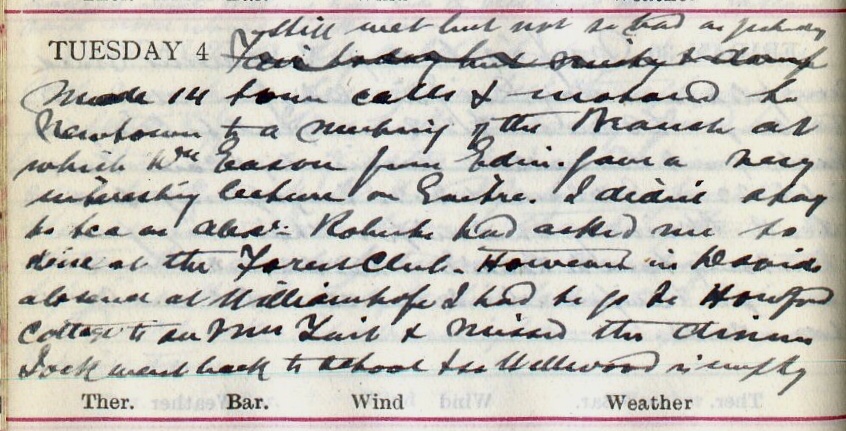 Still wet but not so bad as yesterday
TUESDAY 4 Fair today but misty & damp
Made 14 town calls & motored to
Newtown to a meeting of the Branch at
which Wm Eason from Edin. gave a very
interesting lecture on Goitre. I didn't stay
to tea as Alexr. Roberts had asked me to
dine at the Forest Club. However in Davids
absence at Williamhope I had to go to Howford
Cottage to see Mrs Tait & missed the dinner
Jock went back to school & so Wellwood is empty
Ther. Bar. Wind Weather